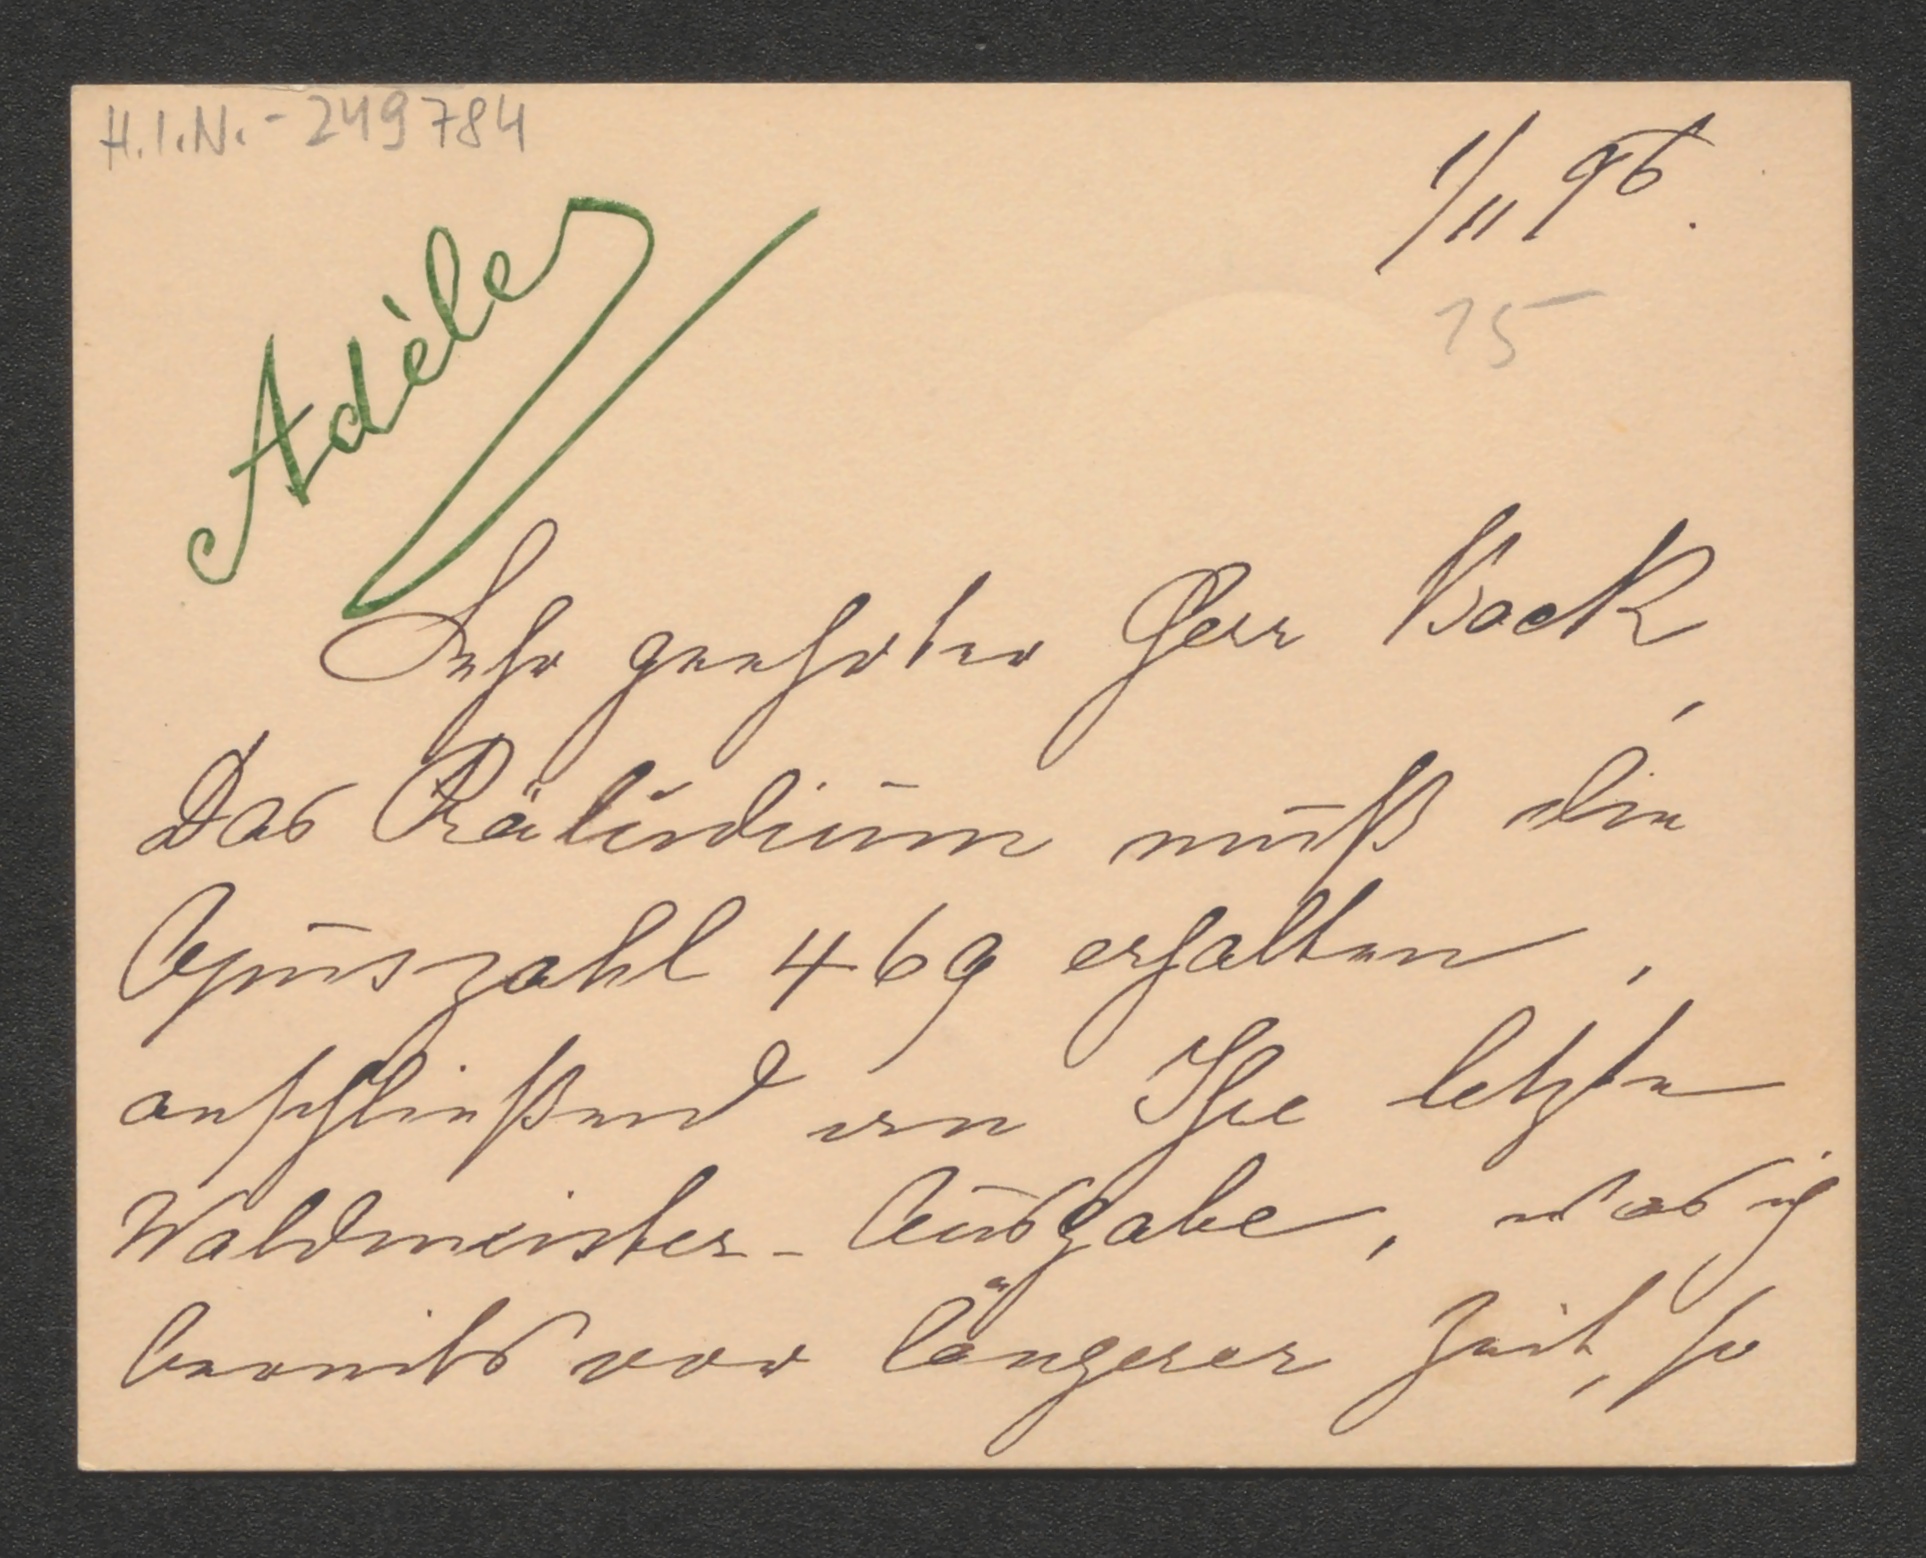 H.I.N.-249784
1/11 96.
15
Adèle
Sehr geehrter Herr Bock,
Das Präludium muß die
Opuszahl 469 erhalten,
anschließend an Ihre letzte
Waldmeister-Ausgabe, was ich
bereits vor längerer Zeit, so